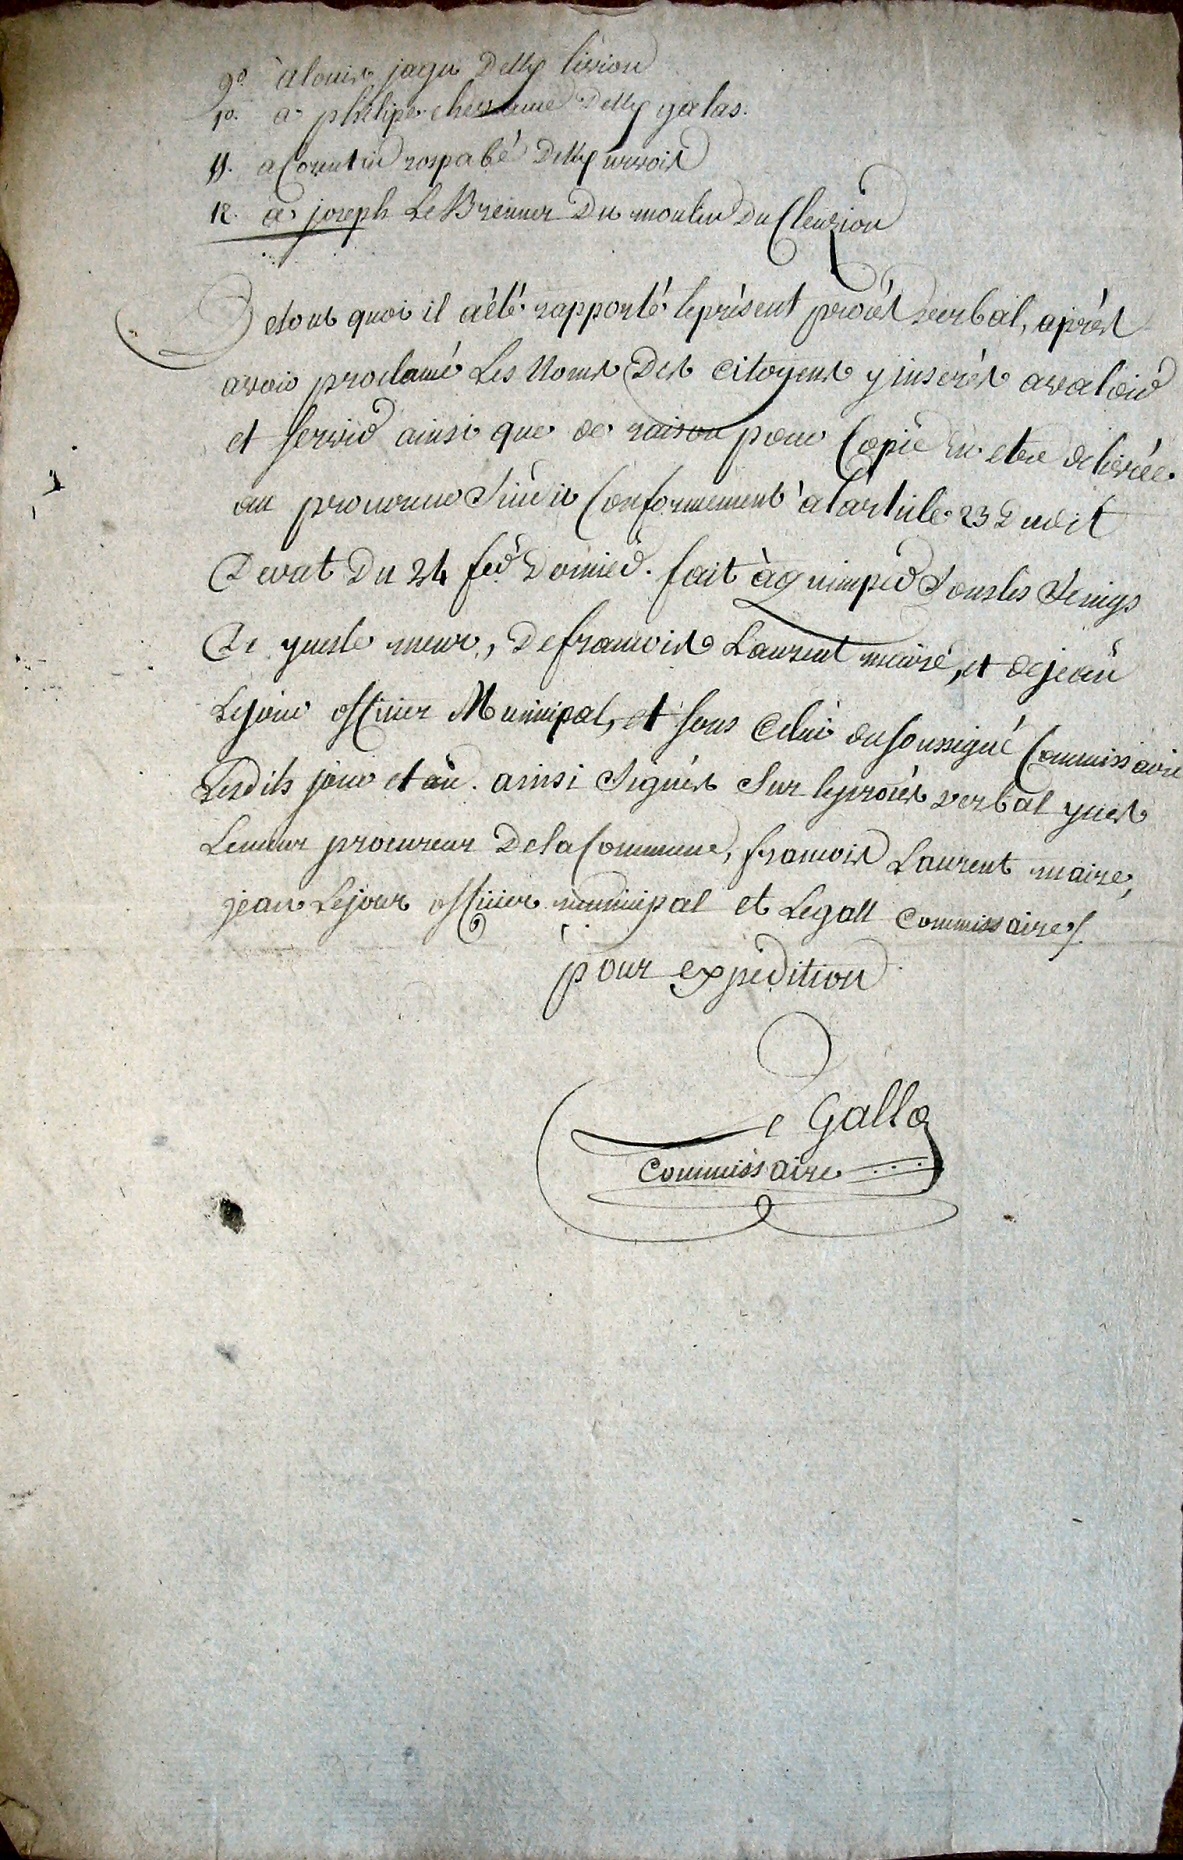 9º à louis jagu Delly liviou
10. a philipe chevanue Delly galas.
11. a Corentin rospabé Delly urvois
12. a joseph Le Brenner Du moulin Du Cleuziou
De tout quoi il a été rapporté le présent procés verbal, aprés
avoir proclamé Les Noms Des citoyens y inserés a valoir
et servir ainsi que de raison pour Copie en etre delivrée
au procureur Sindic Conformement à l'article 23 Dudit
Decrat Du 24 fevr Dernier. fait à guimper Sous les Seings
De yves le meur, De francois Laurent maire, et de jean
Lejour officier Municipal, et sous Celui du soussigné Commissaire
Lesdits jour et an. ainsi Signés Sur le procés verbal yves
Lemeur procureur De la Commune, francois Laurent maire,
jean Lejour officier municipal et Legall commissaire /.
pour expedition
Le Gall
Commissaire